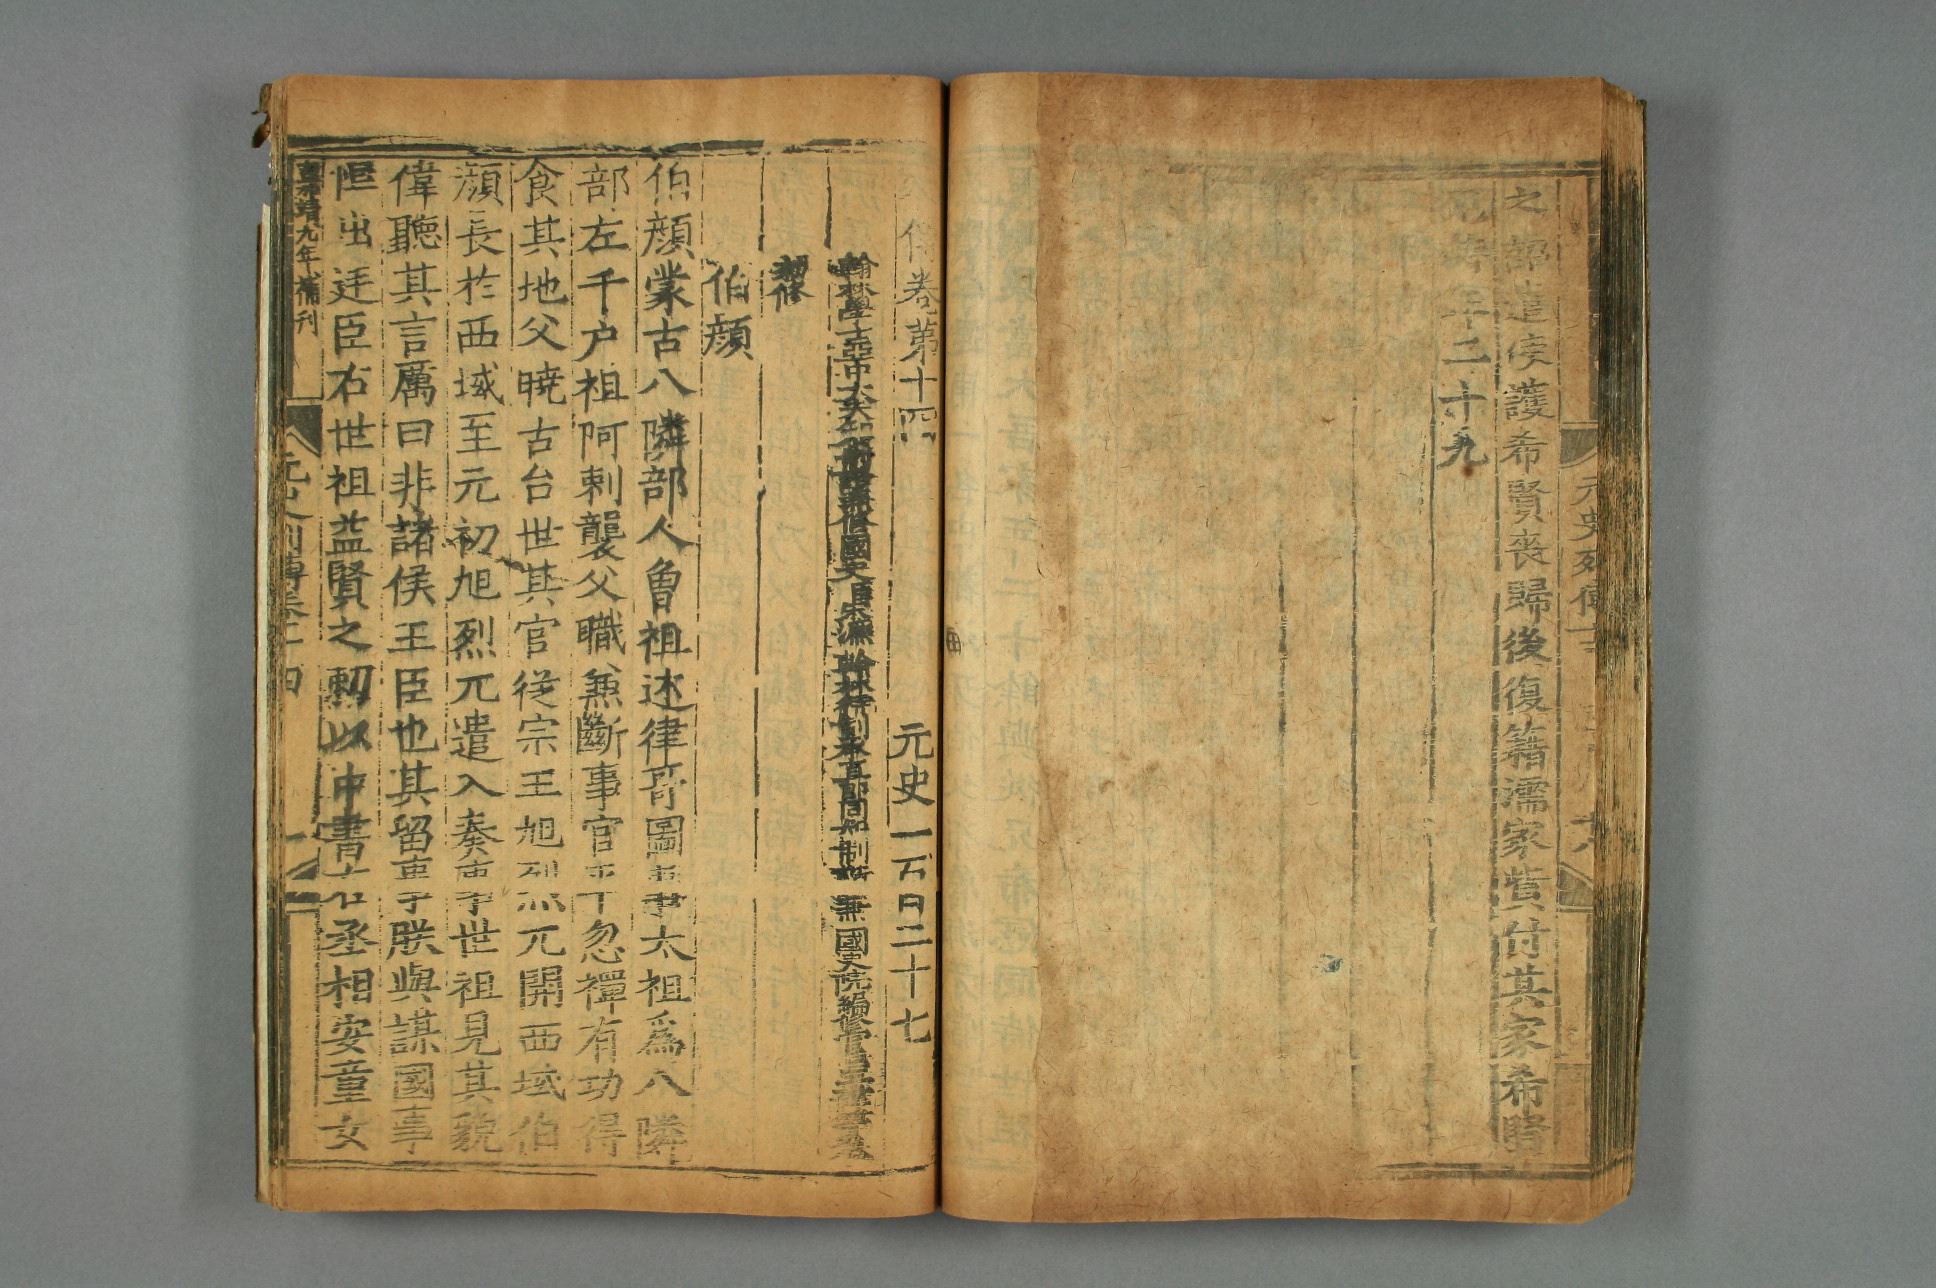 之部遣使護希賢喪歸後復籍濡家貲付其家希賢
卒年二十九
元史列傳十三
傳卷第十四 元史一百二十七
翰林學士亞中大夫知制誥兼脩國史臣宋濂翰林待制承直郎同知制誥兼國史院編脩官臣王禕等奉
勑修
伯顏
伯顏蒙古八隣部人曾祖述律哥圖事太祖爲八隣
部左千户祖阿剌襲父職兼斷事官平忽禪有功得
食其地父曉古台世其官從宗王旭烈兀開西域伯
顏長於西域至元初旭烈兀遣入奏事世祖見其貌
偉聽其言厲曰非諸侯王臣也其留事朕與謀國事
恒出廷臣右世祖益賢之勑以中書右丞相安童女
嘉靖九年補刊
元史列傳卷十四